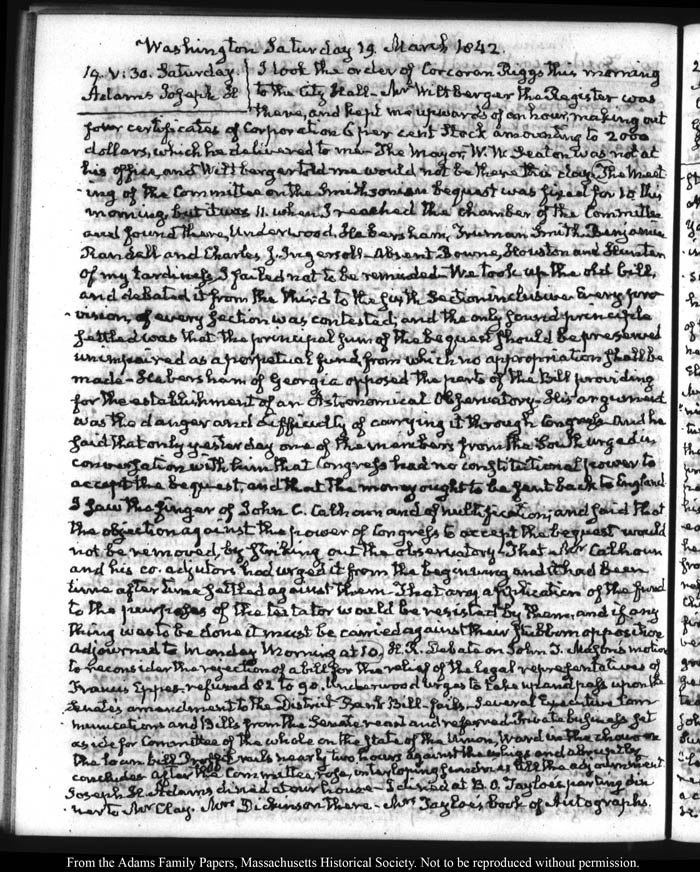 Washington Saturday 19. March 1842.
19. V:30. Saturday. I took the order of Corcoran Riggs this morning
Adams Joseph H to the City Hall— Mr Wiltberger the Register was
there, and kept me upwards of an hour, making out
four certificates of Corporation 6 per cent Stock amounting to 2000
dollars, which he delivered to me— The Mayor, W. W. Seaton was not at
his office, and Wiltberger told me would not be there this day. The meet-
ing of the Committee on the Smithsonian bequest was fixed for 10 this
morning, but it was 11 when I reached the chamber of the Committee
and found there, Underwood, Habersham, Truman Smith, Benjamin
Randall and Charles J. Ingersoll— Absent Bowne, Houston and Hunter
Of my tardiness I failed not to be reminded— We took up the old bill,
and debated it from the third to the sixth Section inclusive. Every pro-
vision, of every section was contested; and the only sound principle
settled was that the principal sum of the bequest should be preserved
unimpaired as a perpetual fund, from which no appropriation shall be
made— Habersham of Georgia opposed the parts of the Bill providing
for the establishment of an Astronomical Observatory— His argument
was the danger and difficulty of carrying it through Congress— And he
said that only yesterday one of the members from the South urged in
conversation with him that Congress had no constitutional power to
accept the bequest, and that the money ought to be sent back to England
I saw the finger of John C. Calhoun and of nullification; and said that
the objection against the power of Congress to accept the bequest would
not be removed, by striking out the observatory— That Mr Calhoun
and his co-adjutors had urged it from the beginning and it had been
time after time settled against them— That any application of the fund
to the purposes of the testator would be resisted by them, and if any
thing was to be done it must be carried against their stubborn opposition
Adjourned to Monday Morning at 10, H. R. Debate on John T. Mason's motion
to reconsider the rejection of a bill for the relief of the legal representatives of
Francis Eppes— refused 82 to 90. Underwood urges to take up and pass upon the
Senate's amendment to the District Bank Bill— fails— Several Executive Com-
munications and Bills from the Senate read and referred. Private business set
aside for Committee of the whole on the state of the Union. Ward in the chair on
the loan bill Proffit rails nearly two hours against the whigs and abruptly
concludes after the Committee rose, till the adjournment
Joseph H. Adams dined at our house— I dined at B. O. Tayloe's parting din-
ner to Mr Clay. Mrs Dickinson there— Mrs Tayloe's book of Autographs.
From the Adams Family Papers, Massachusetts Historical Society. Not to be reproduced without permission.